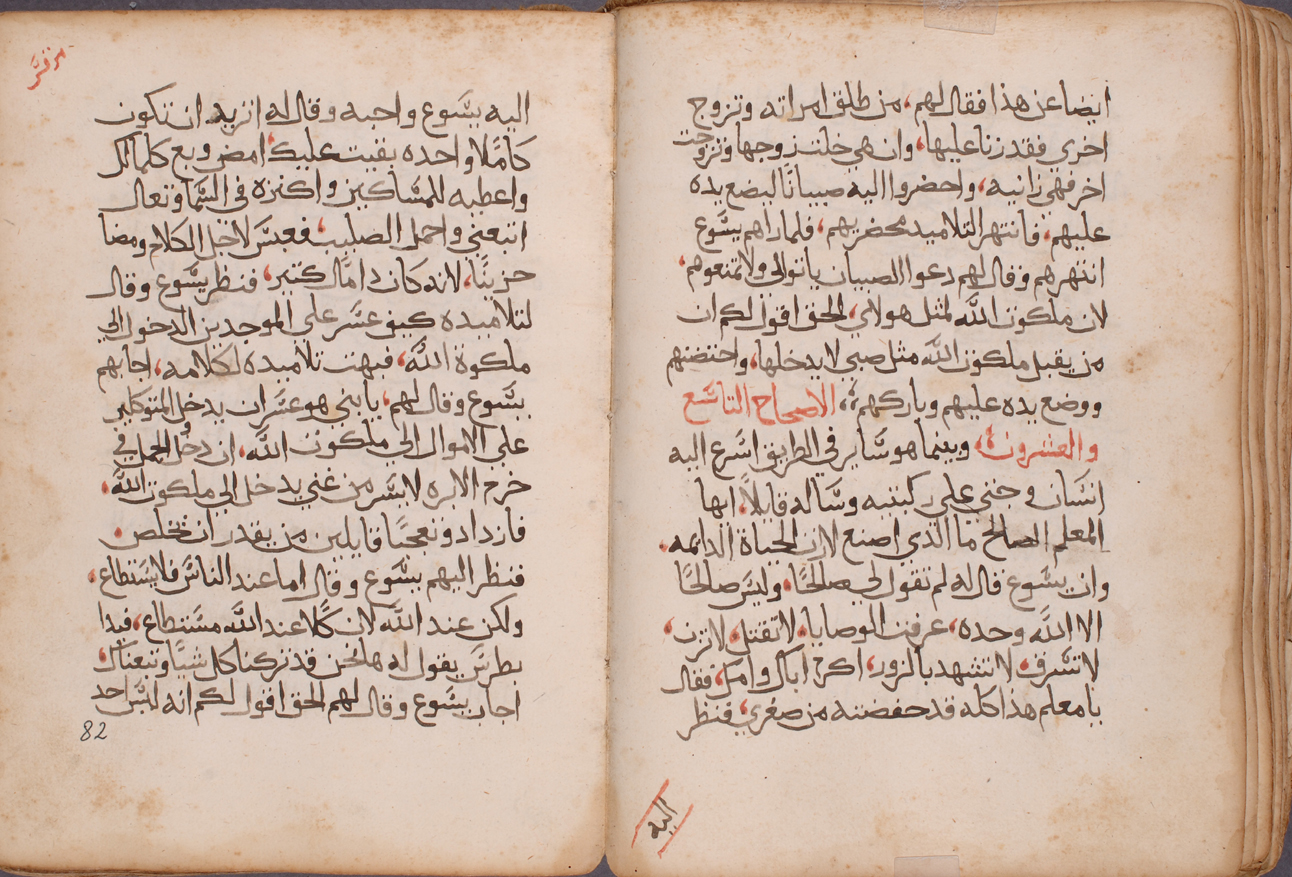 ايضا عن هذا فقال لهم، من طلق امراته وتزوج
اخرى فقد زنا عليها، وان هي خلت زوجها وتزوجت
اخر فهي زانيه، واحضروا اليه صبيانًا ليضع يده
عليهم، فانتهر التلاميد محضريهم، فلما راهم يسوع
انتهرهم وقال لهم دعوا الصبيان ياتوا الي ولا تمنعوهم،
لان ملكوت الله لمثل هولاي، الحق اقول لكم ان
من يقبل ملكوت الله مثل صبي لا يدخلها، واحتضنهم
ووضع يده عليهم وباركهم، الاصحاح التاسع
والعشرون، وبينما هو ساير في الطريق اسرع اليه
انسان وجتي علي ركبتيه وساله قايلاً، ايها
المعلم الصالح ما الذي اصنع لارت الحياة الدايمه،
وان يسوع قال له لم تقول لي صالحًا، وليس صالحًا
الا الله وحده، عرفت الوصايا، لا تقتل، لا تزن،
لا تسرق، لا تشهد بالزور، اكرم اباك وامك، فقال
يا معلم هذا كله قد حفضته من صغري، فنظر
اليه
اليه يسوع واحبه وقال له اتريد ان تكون
كاملًا واحده بقيت عليك، امض وبع كلما لك
واعطيه للمساكين واكنزه في السما وتعال
اتبعني واحمل الصليب، فعبس لاجل الكلام ومضا
حزينًا، لانه كان دا مال كتير، فنظر يسوع وقال
لتلاميده كيف عسر علي الموجدين الدخول الي
ملكوة الله، فبهت تلاميده لكلامه، اجابهم
يسوع وقال لهم، يا بني هو عسر ان يدخل المتوكلين
علي الاموال الي ملكوت الله، ان دخول الجمل في
خرم الابره لايسر من غني يدخل الي ملكوت الله،
فازدادو تعجبًا قايلين من يقدر ان يخلص،
فنظر اليهم يسوع وقال اما عند الناس فلا يستطاع،
ولكن عند الله لان كلًا عند الله مستطاع، فبدا
بطرس يقول له ها نحن قد تركنا كل شيًا وتبعناك،
اجاب يسوع وقال لهم الحق اقول لكم انه ليس احد
82